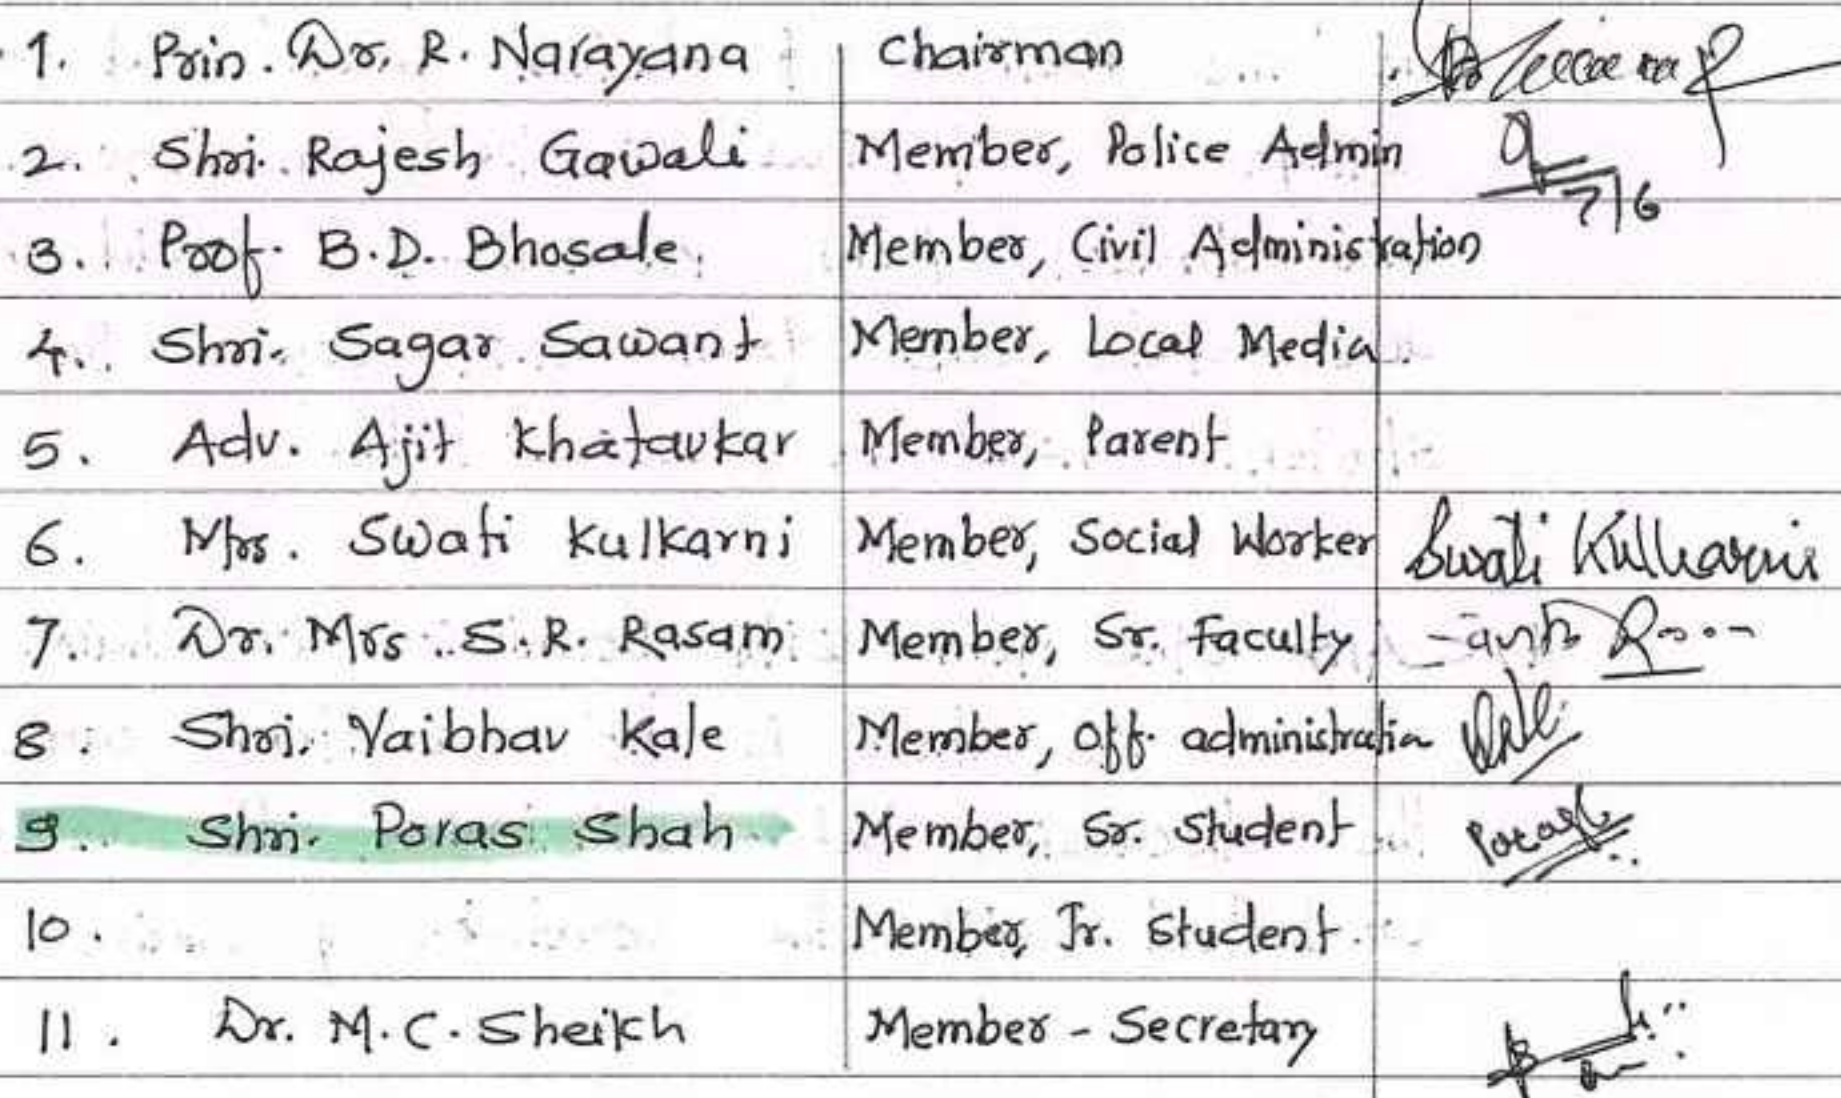 1. Prin. Dr. R. Narayana Chairman
2. Shri. Rajesh Gawali Member, Police Admin 7/6
3. Prof. B.D. Bhosale Member, Civil Administration
4. Shri. Sagar Sawant Member, Local Media
5. Adv. Ajit Khatavkar Member, Parent
6. Mrs. Swati Kulkarni Member, Social Worker Swati Kulkarni
7. Dr. Mrs S.R. Rasam Member, Sr. Faculty
8. Shri. Vaibhav Kale Member, Off. administration
9. Shri. Poras Shah Member, Sr. Student
10. Member, Jr. Student
11. Dr. M.C. Sheikh Member - Secretary